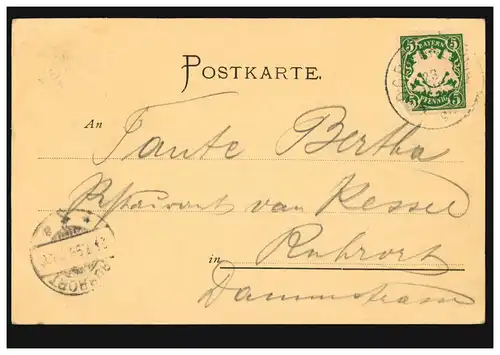 5 BAYERN 5
5 PFENNIG 5
POSTKARTE.
An
Tante Bertha
Restaurant van Kessel
in Ruhrort
Dammstrasse
RUHRORT